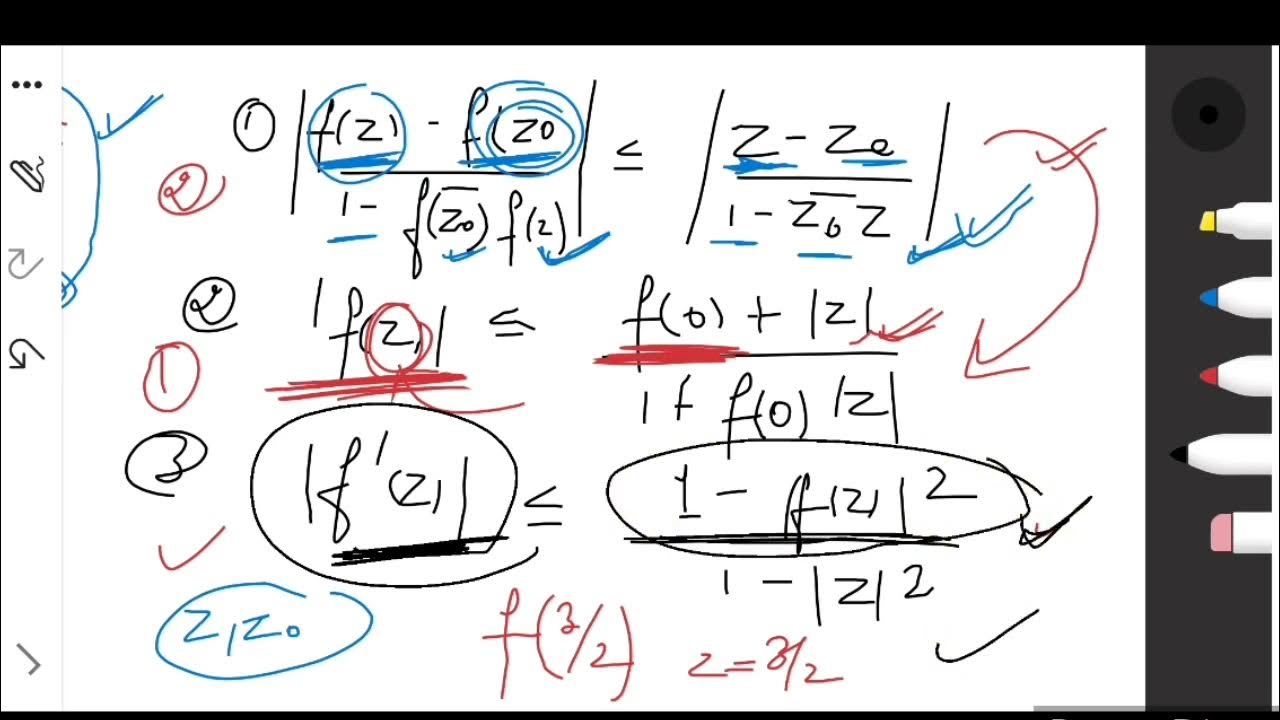 ① | f(z) - f(z₀ / 1 - f(z̅₀) f(z) | ≤ | z - z₀ / 1 - z̅₀ z |
②
② | f(z) | ≤ f(0) + |z| / 1 + f(0) |z|
①
③ | f'(z) | ≤ 1 - f(z)|² / 1 - |z|²
z, z₀ f(3/2) z = 3/2